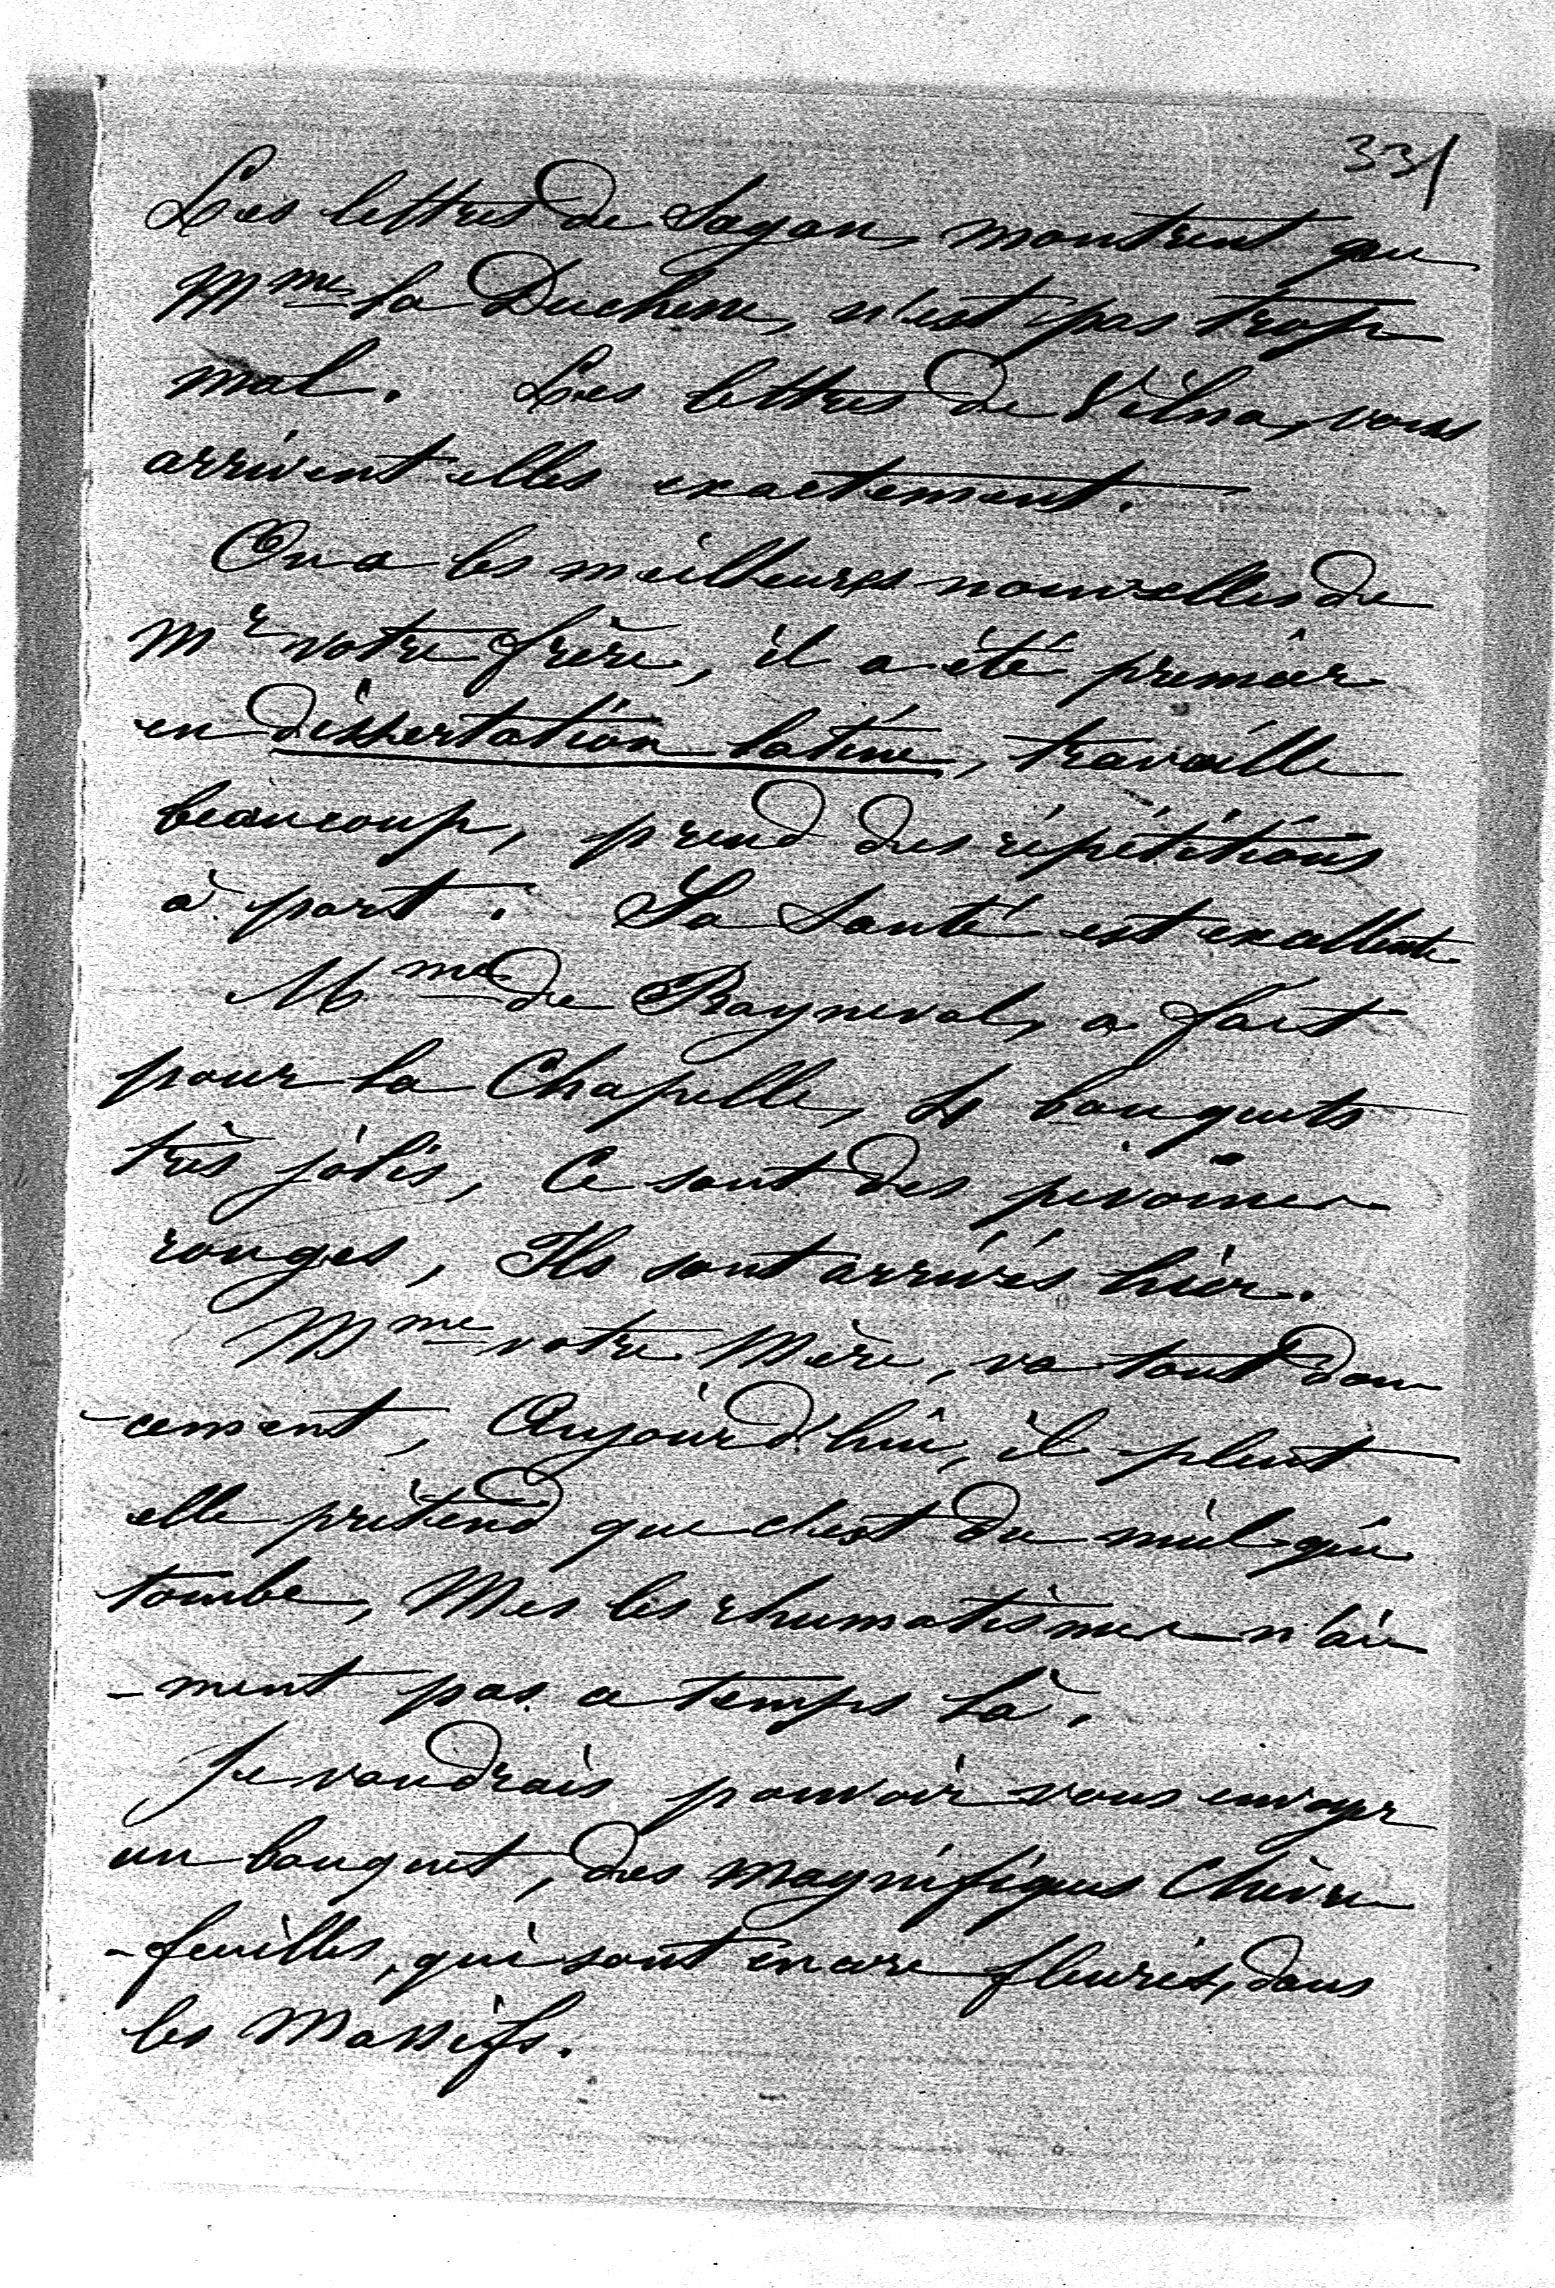 331
Les lettres de Sagan, montrent que
Mme la Duchesse, n'est pas trop
mal. Les lettres de Vilna, vous
arrivent elles exactement.
On a les meilleures nouvelles de
Mr votre frère, il a été premier
en dissertation latine, travaille
beaucoup, prend des répétitions
à part. Sa Santé est excellente
Mme de Rayneval, a fait
pour la Chapelle, bouquets
très jolis, Ce sont des pivoines
rouges, Ils sont arrivés hier.
Mme votre Mère, va tout dou
-cement, Aujourd'hui, il pleut
elle prétend que c'est du miel qui
tombe, Mes les rhumatismes n'ai
-ment pas ce temps là.
Je voudrais pouvoir vous envoyer
un bouquet, des magnifiques Chèvre
-feuilles, qui sont encore fleuris, dans
les Massifs.